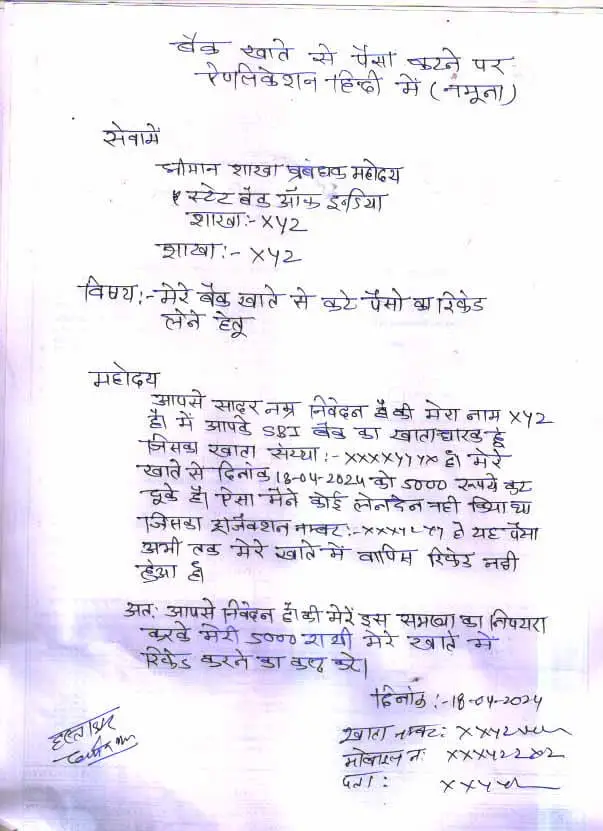 बैंक खाते से पैसा कटने पर
ऐपलिकेशन हिन्दी में (नमूना)
सेवामें
श्रीमान शाखा प्रबंधक महोदय
स्टेट बैंक ऑफ इन्डिया
शाखा:- XYZ
शाखा:- XYZ
विषय:- मेरे बैंक खाते से कटे पैसो का रिफंड
लेने हेतू
महोदय
आपसे सादर नम्र निवेदन है की मेरा नाम XYZ
है। में आपके SBI बैंक का खाताधारक हूँ
जिसका खाता संख्या:- XXXXYYYX है। मेरे
खाते से दिनांक 18-04-2024 को 5000 रूपये कट
चूके है। ऐसा मैने कोई लेनदेन नही किया था
जिसका नम्बर:- है यह पैसा
अभी तक मेरे खाते में वापिस रिफंड नही
हुआ है।
अत: आपसे निवेदन है। की मेरें इस समस्या का निपटारा
करके मेरी 5000 राशी मेरे खाते में
रिफंड करने का कष्ट करे।
दिनांक:- 18-04-2024
खाता नम्बर:
मोबाइल न:
पता:
हस्ताक्षर